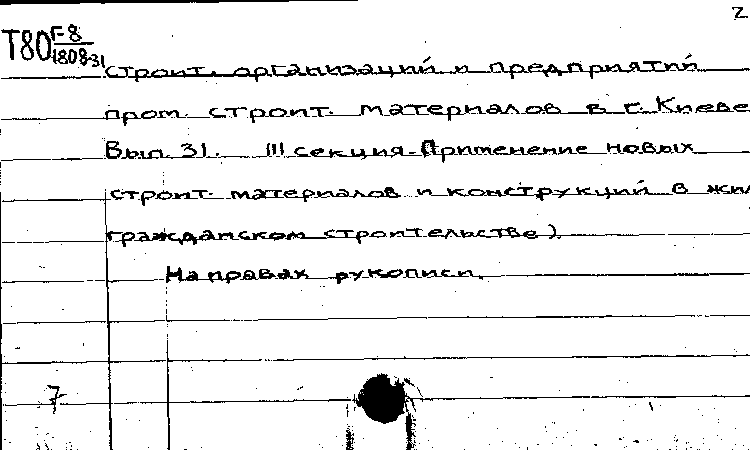 2
Т80 Г-8
1808-31
строит. организаций и предприятий
пром. строит. материалов в г. Киеве
Вып. 31. III секция. Применение новых
строит. материалов и конструкций в жил
гражданском строительстве).
На правах рукописи.
7